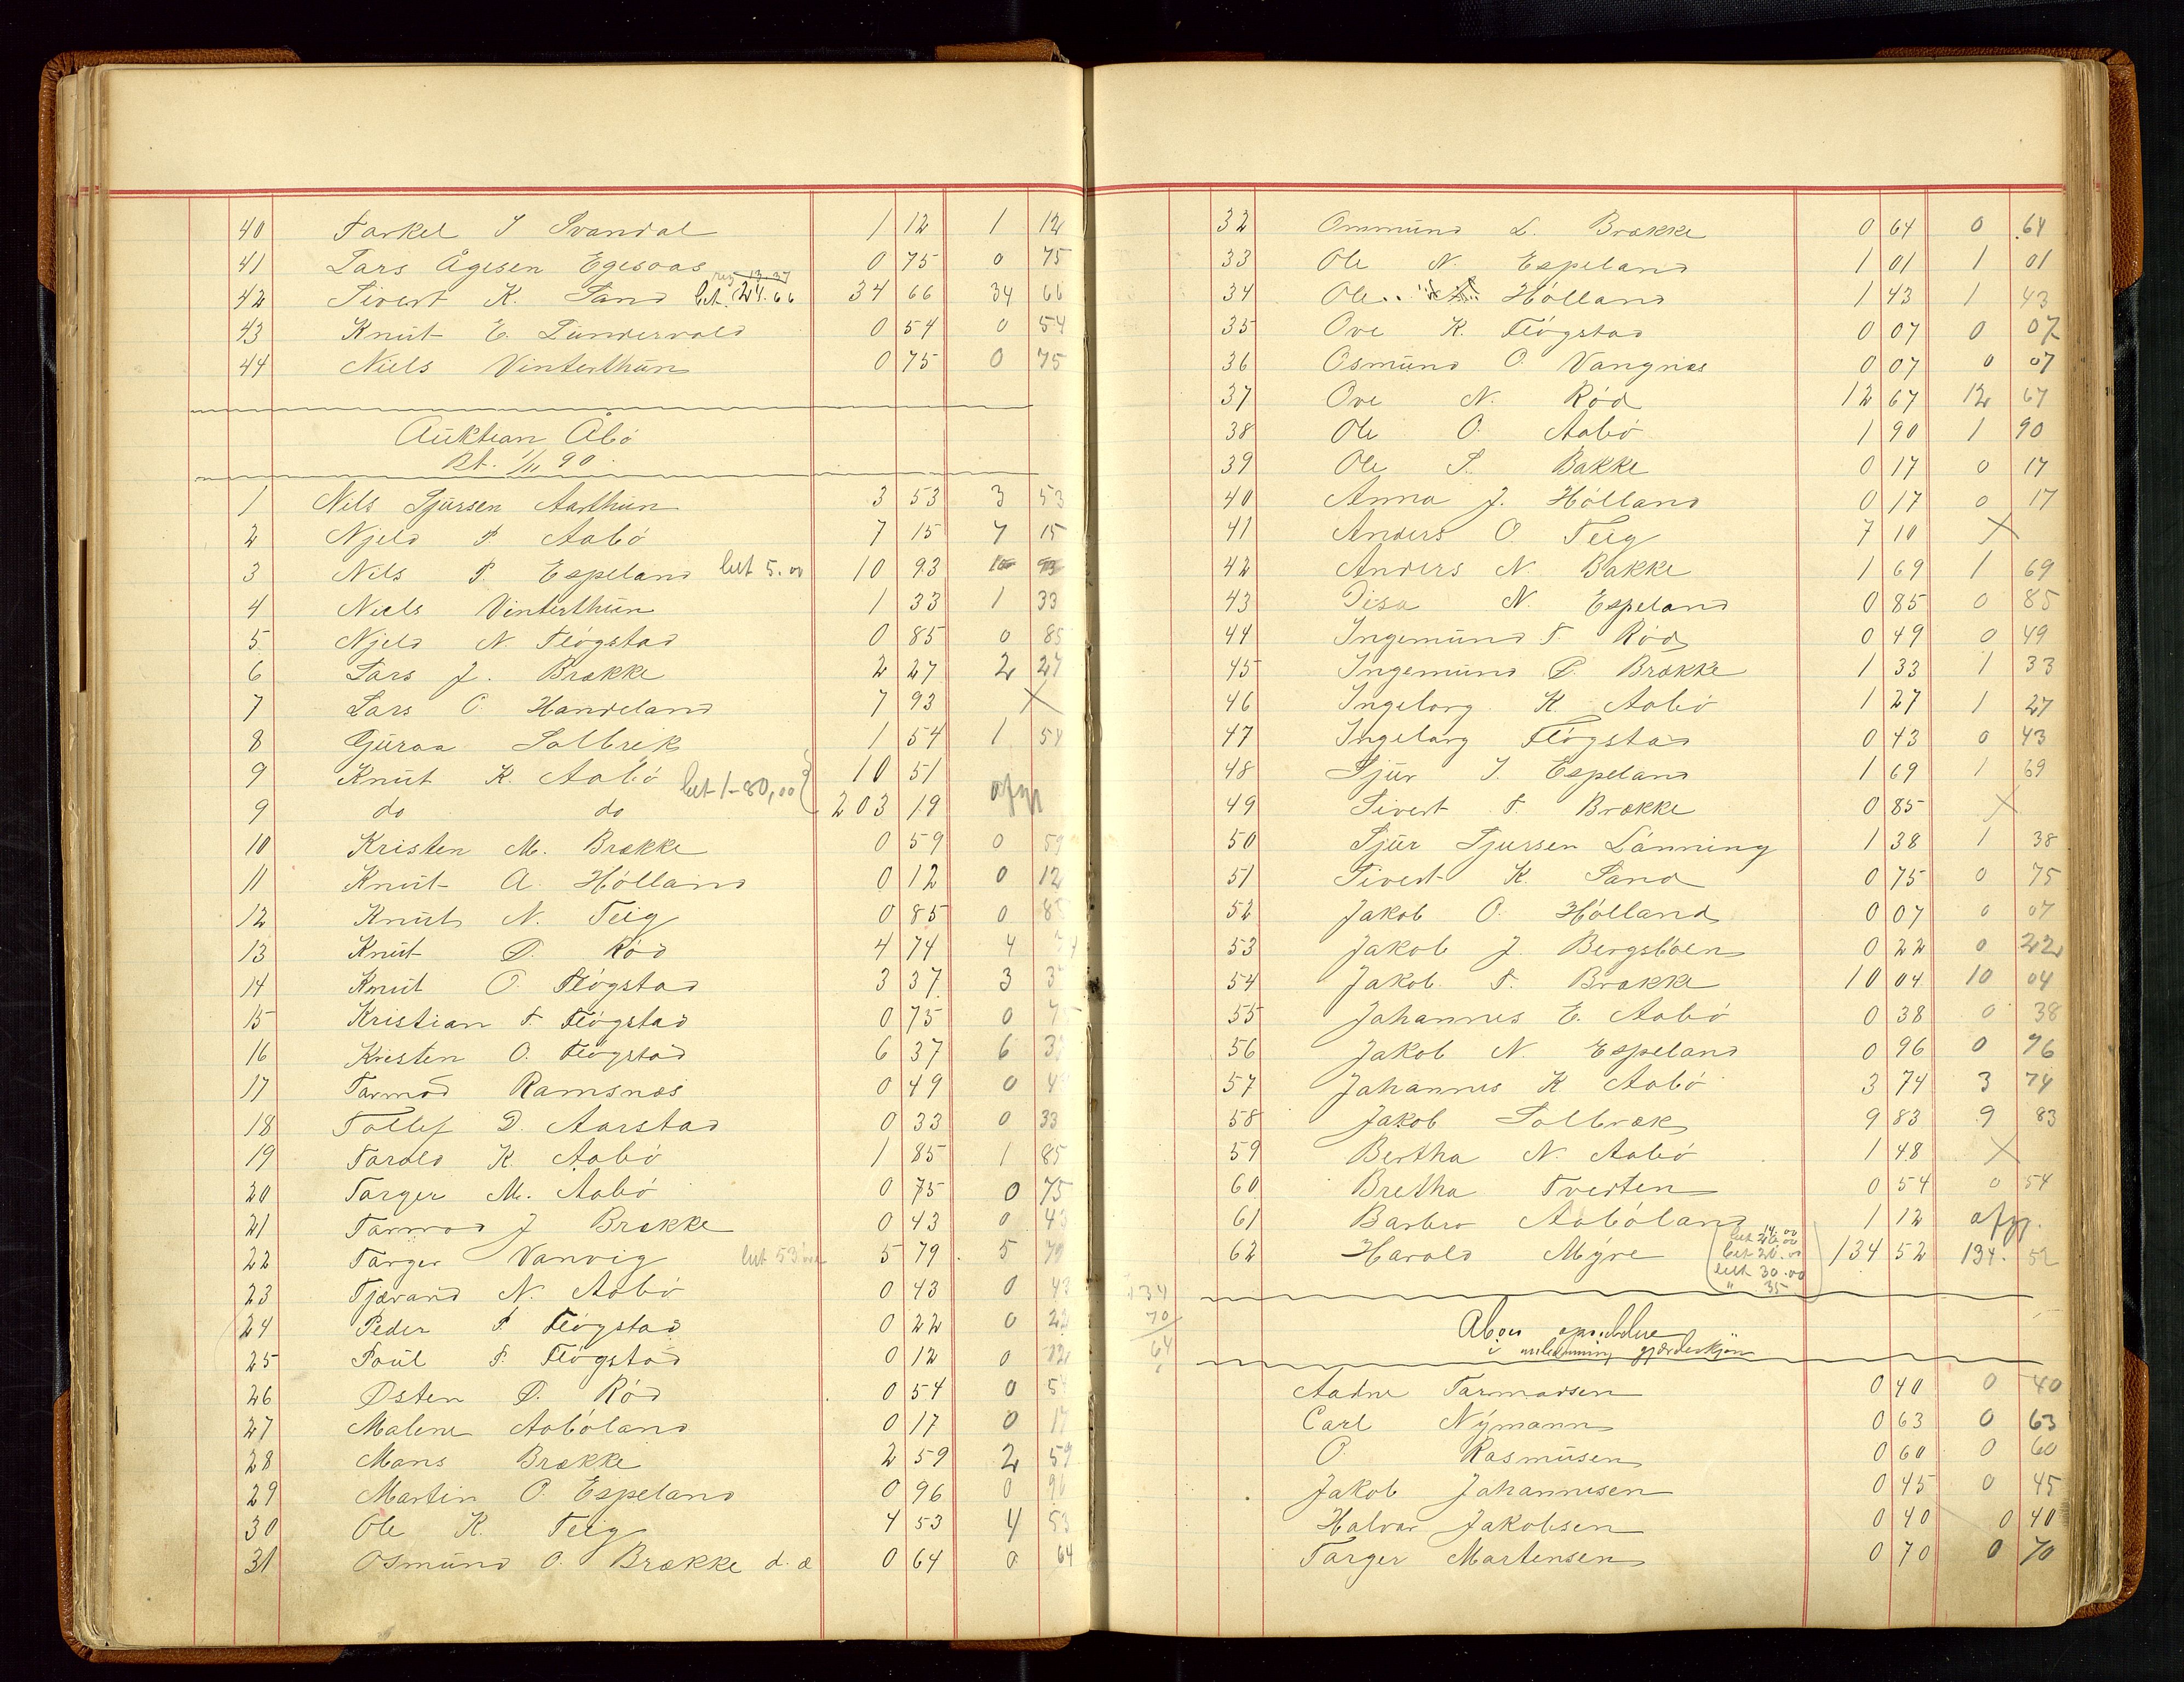 40 Tarkel T Svandal 1 12 1 12
41 Lars Ågesen Egesvas 0 75 0 75
42 Sivert K. Sand bet. 24.66 34 66 34 66
43 Knut E. Lundervold 0 54 0 54
44 Niels Vinterthun 0 75 0 75
Auktion Åbö
Bt. 1/11 90.
1 Nils Sjursen Aarthun 3 53 3 53
2 Njeld T Aabö 7 15 7 15
3 Nils T. Espeland bet 5.00 10 93
4 Niels Vinterthun 1 33 1 33
5 Njeld N. Flógstad 0 85 0 85
6 Lars J. Brække 2 27 2 27
7 Lars O. Handeland 7 93 X
8 Guroa Solbrek 1 54 1 54
9 Knut K. Aabö bet 1-80,00 10 51
9 do do 203 19 afgj
10 Kristen M. Brække 0 59 0 59
11 Knut A. Hólland 0 12 0 12
12 Knut N. Teig 0 85 0 85
13 Knut Ø. Rød 4 74 4 74
14 Knut O. Flógstad 3 37 3 3
15 Kristian T. Flógstad 0 75 0 7
16 Kristen O. Flógstad 6 37 6 3
17 Tarmod Ramsnæs 0 49 0 4
18 Tollef D. Aarstad 0 33 0 33
19 Tarald K. Aabö 1 85 1 85
20 Targer M. Aabö 0 75 0 75
21 Tarmod J Brække 0 43 0 43
22 Targer Vanvig bet 53 5 79 5 79
23 Tjærand N. Aabö 0 43 0 43
24 Peder T. Flógstad 0 22 0 22
25 Poul T. Flógstad 0 12 0 12
26 Østen Ø. Rød 0 54 0 54
27 Malene Aabóland 0 17 0 17
28 Mans Brække 2 59 2 59
29 Martin O. Espeland 0 96 0 96
30 Ole K. Teig 4 53 4 53
31 Osmund O. Brække d. æ 0 64 0 64
32 Ommund L. Brække 0 64 0 64
33 Ole N. Espeland 1 01 1 01
34 Ole Hólland 1 43 1 43
35 Ove K. Flógstad 0 07 0 07
36 Osmund O. Vangnæs 0 07 0 07
37 Ove N. Rød 12 67 12 67
38 Ole O. Aabö 1 90 1 90
39 Ole S. Bakke 0 17 0 17
40 Anna J. Hólland 0 17 0 17
41 Anders O. Teig 7 10 X
42 Anders N. Bakke 1 69 1 69
43 Disa N. Espeland 0 85 0 85
44 Ingemund T. Rød 0 49 0 49
45 Ingemund Ø. Brække 1 33 1 33
46 Ingeborg K. Aabö 1 27 1 27
47 Ingeborg Flógstad 0 43 0 43
48 Sjur T. Espeland 1 69 1 69
49 Sivert T. Brække 0 85 X
50 Sjur Sjursen Lánning 1 38 1 38
51 Sivert K. Sand 0 75 0 75
52 Jakob O. Hólland 0 07 0 07
53 Jakob J. Bergsbóen 0 22 0 22
54 Jakob T. Brække 10 04 10 04
55 Johannes E. Aabö 0 38 0 38
56 Jakob N. Espeland 0 96 0 96
57 Johannes K Aabö 3 74 3 74
58 Jakob Solbræk 9 83 9 83
59 Bertha N. Aabö 1 48 X
60 Bretha Tveiten 0 54 0 54
61 Barbro Aabóland 1 12 afgj.
62 Harald Myre bet 26.00 bet 30.00 " 35 134 52 134. 52
134
70
64
i anledning gjærdeskjön
Aadne Tarmodsen 0 40 0 40
Carl Nymann 0 63 0 63
O. Rasmusen 0 60 0 60
Jakob Johannesen 0 45 0 45
Halvor Jakobsen 0 40 0 40
Targer Martensen 0 70 0 70